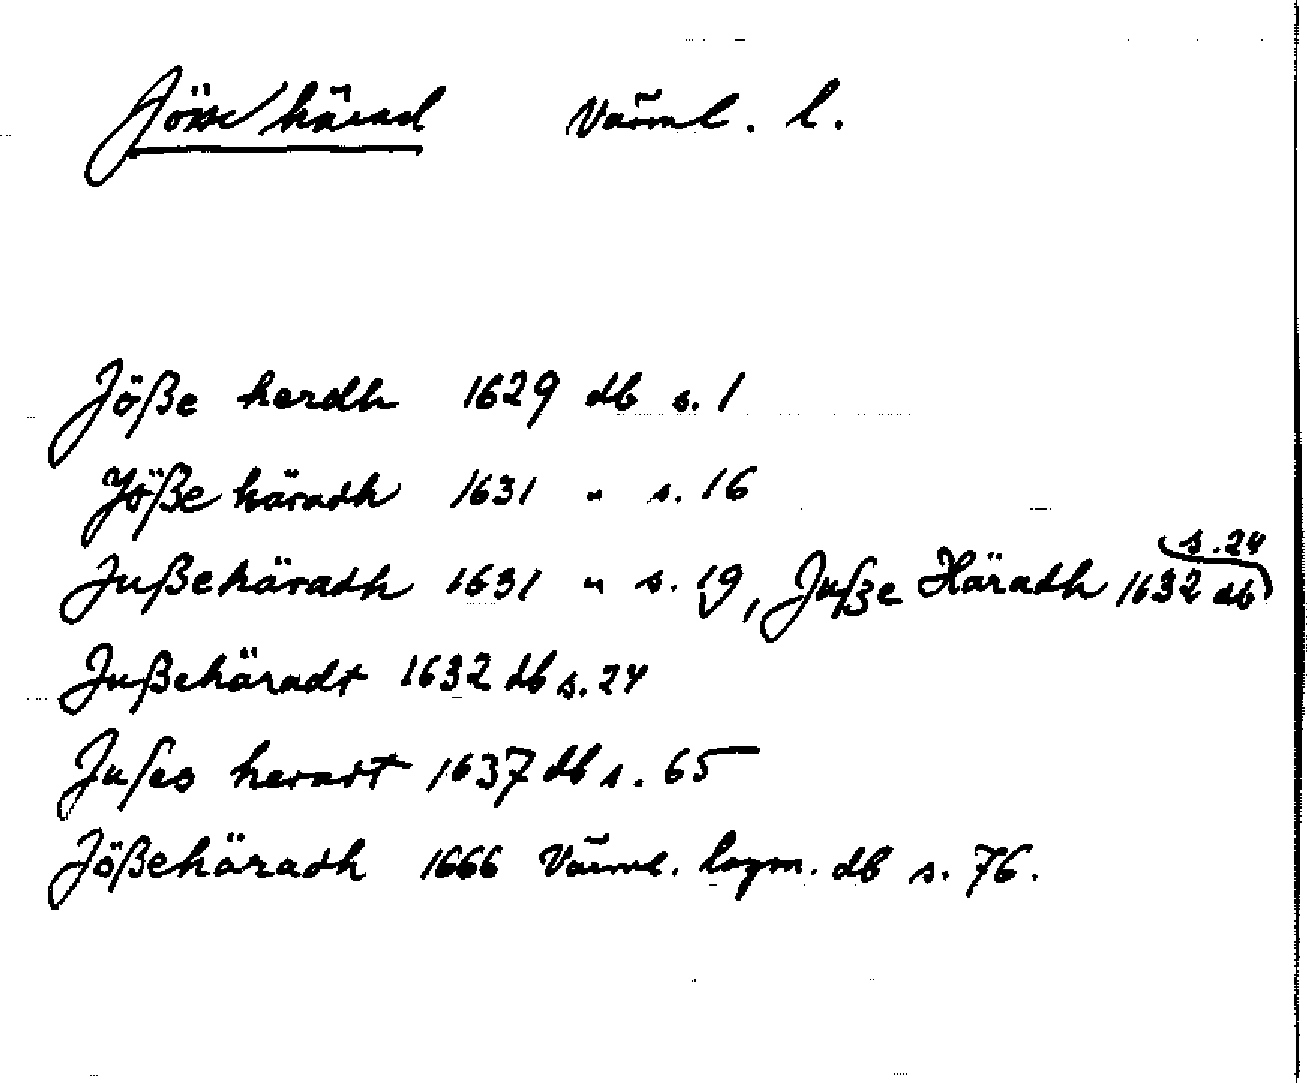 Jösse härad Värml. l.
Jöße herdh 1629 db s. 1
Jöße häradh 1631 " s. 16
Jußehäradh 1631 " s. 19, Juße Häradh 1632 db s. 24
Jußehäradt 1632 db s. 24
Juses herart 1637 db s. 65
Jößehäradh 1666 Värml. lagm. db s. 76.